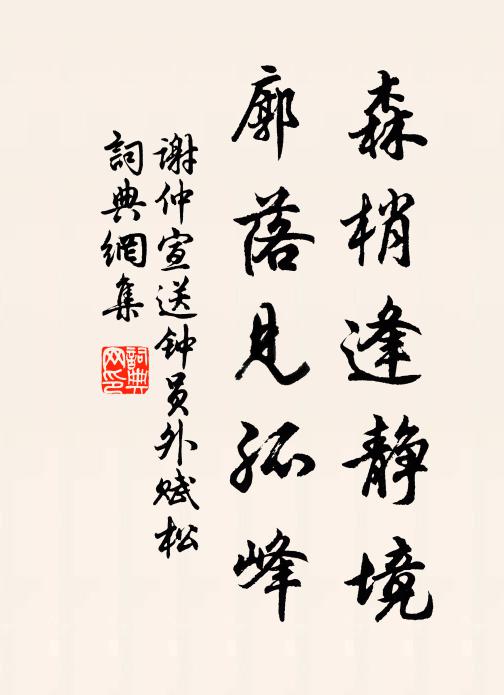 森梢逢静境
廓落见孤峰
谢仲宣送钟员外赋松
詞典網集
詞典网印